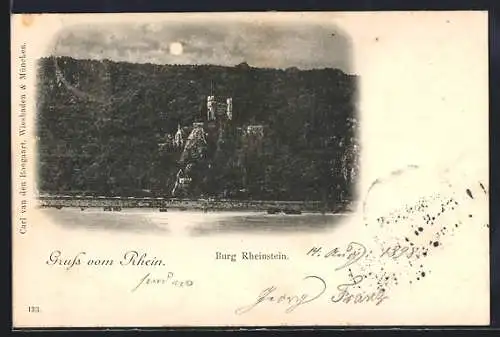 Carl van den Boogaart, Wiesbaden & München.
Gruß vom Rhein.
Burg Rheinstein.
14. 1898.
Georg Franz
123.